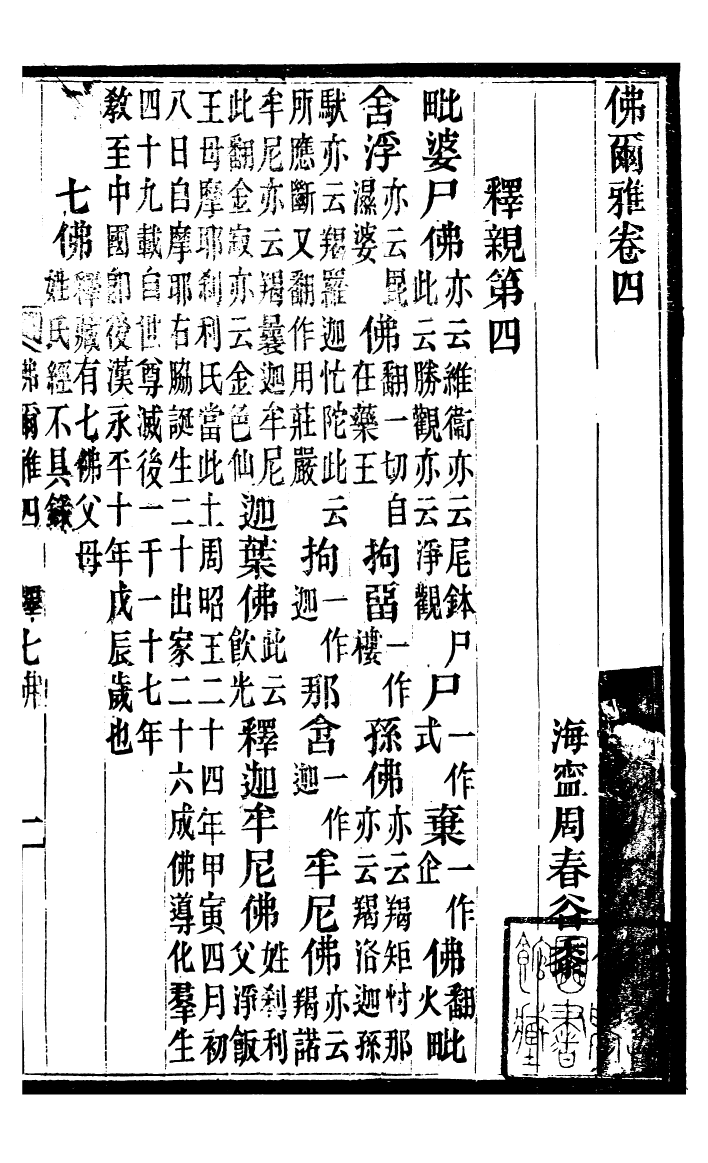 佛爾雅卷四
海寍周春谷黍
釋親第四
毗婆尸佛亦云維衞亦云尾鉢尸此云勝觀亦云淨觀尸一作式棄一作企佛翻火毗
舍浮亦云毘濕婆佛翻一切自在藥王拘畱一作樓孫佛亦云羯矩忖那亦云羯洛迦孫
馱亦云羯羅迦忙陀此云所應斷又翻作用莊嚴拘一作迦那含一作迦牟尼佛亦云羯諾
牟尼亦云羯曩迦牟尼此翻金寂亦云金色仙迦葉佛此云飲光釋迦牟尼佛姓刹利父淨飯
王母摩耶刹利氏當此土周昭王二十四年甲寅四月初
八日自摩耶右脇誕生二十出家二十六成佛導化羣生
四十九載自世尊滅後一千一十七年
教至中國即後漢永平十年戊辰歲也
七佛釋藏有七佛父母姓氏經不具錄
佛爾雅四 釋七佛 一
圖書館藏